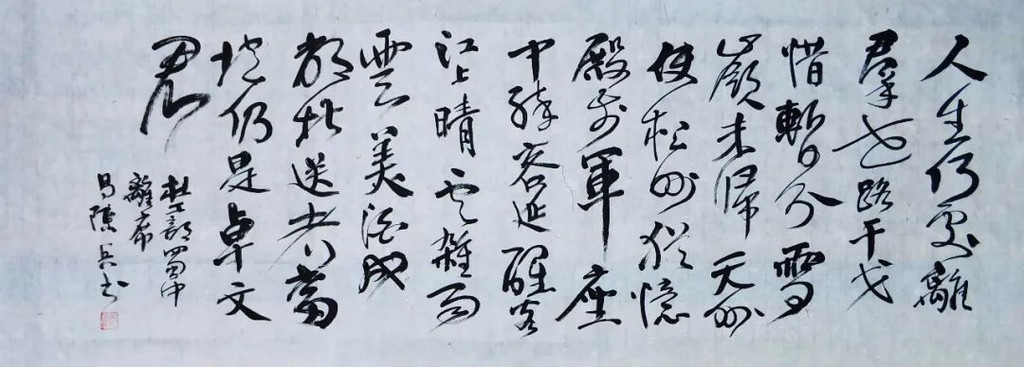 人生何處離
羣世路干戈
惜暫分雪
嶺未歸天外
使松州猶憶
殿前軍座
中醉客延醒客
江上晴云雜雨
雲美酒成
都堪送老當
垆仍是卓文
君
杜工部蜀中
離席
書